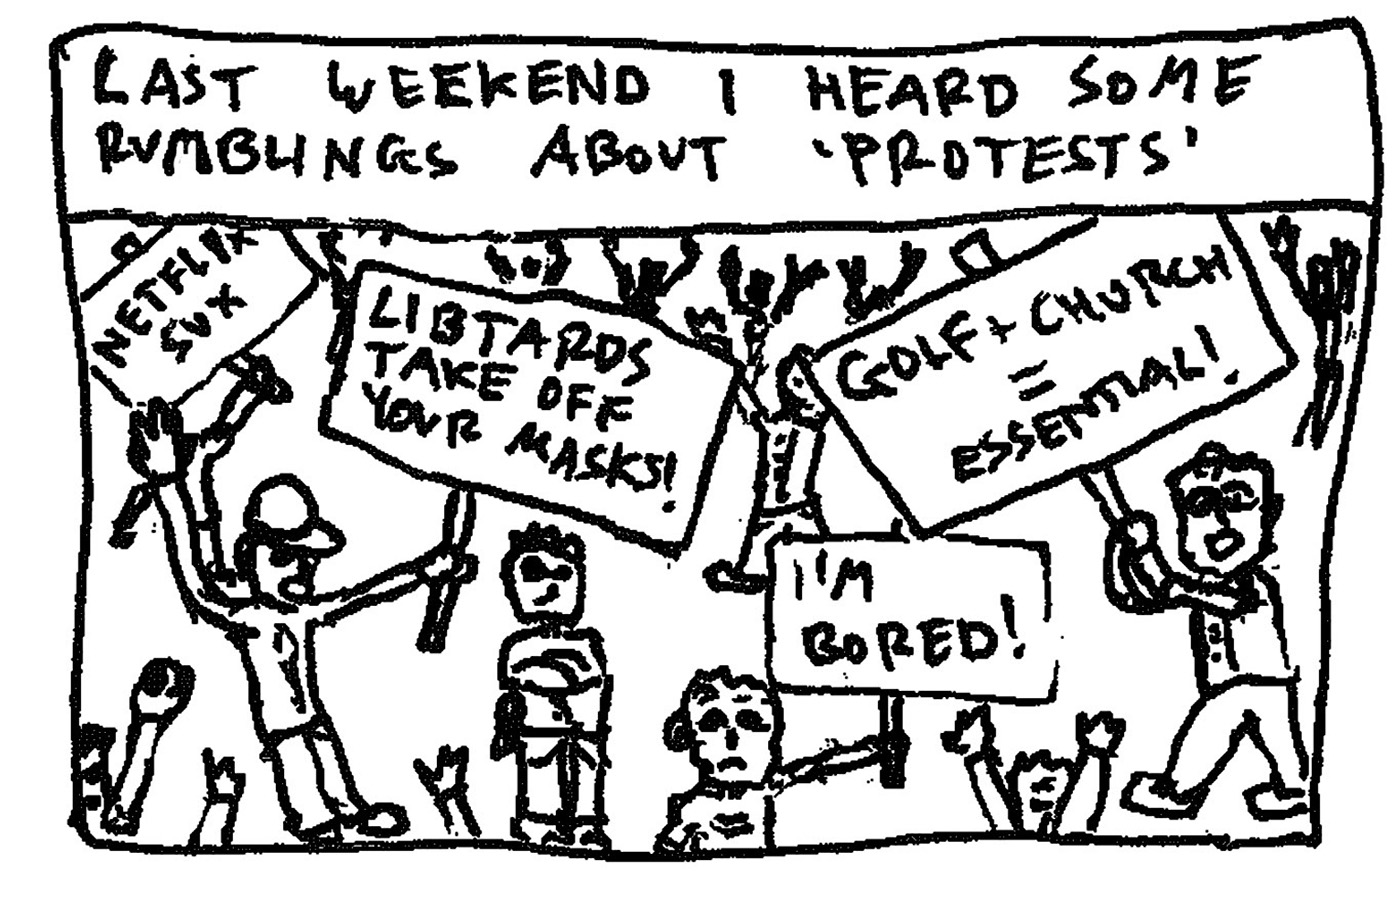 LAST WEEKEND I HEARD SOME
RUMBLINGS ABOUT 'PROTESTS'
NETFLIX
SUX
LIBTARDS
TAKE OFF
YOUR MASKS!
GOLF + CHURCH
=
ESSENTIAL!
I'M
BORED!